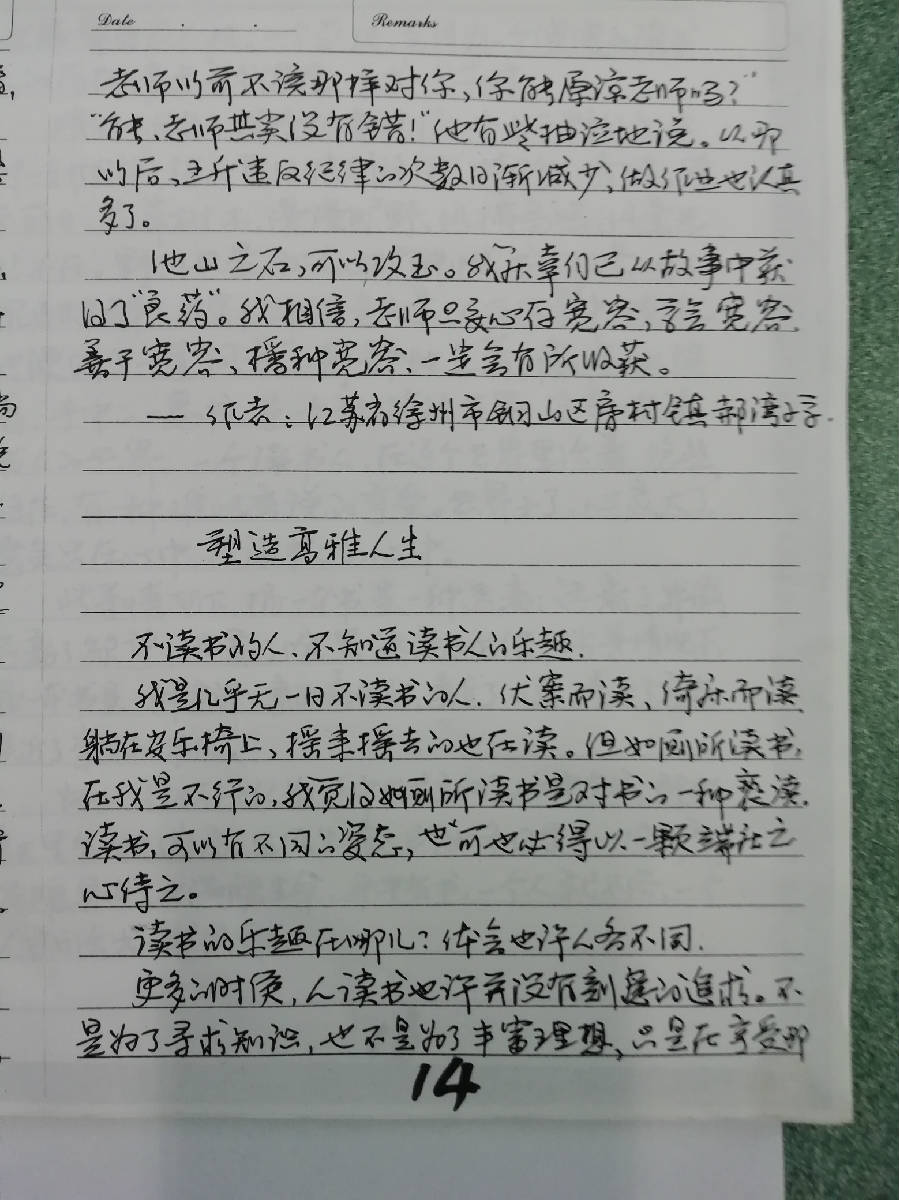 Date
Remarks
老师以前不该那样对你，你能原谅老师吗？"
"能，老师其实没有错！"他有些抽泣地说。从那
以后，违反纪律的次数日渐减少，做作业也认真
多了。
他山之石，可以攻玉。我荣幸们已从故事中获
得了"良药"。我相信，老师只要心存宽容，宽容，
善于宽容，播种宽容，一定会有所收获。
— 作者：江苏省徐州市铜山区房村镇郝湾小学.
塑造高雅人生
不读书的人，不知道读书人的乐趣.
我是几乎无一日不读书的人. 伏案而读、倚床而读
躺在安乐椅上，摇来摇去的也在读。但如厕所读书，
在我是不行的，我觉得如厕所读书是对书的一种亵渎.
读书，可以有不同的姿态，也可也必得以一颗端庄之
心待之。
读书的乐趣在哪儿？体会也许人各不同.
更多的时候，人读书也许并没有刻意的追求。不
是为了寻求知识，也不是为了丰富理想，只是在享受那
14